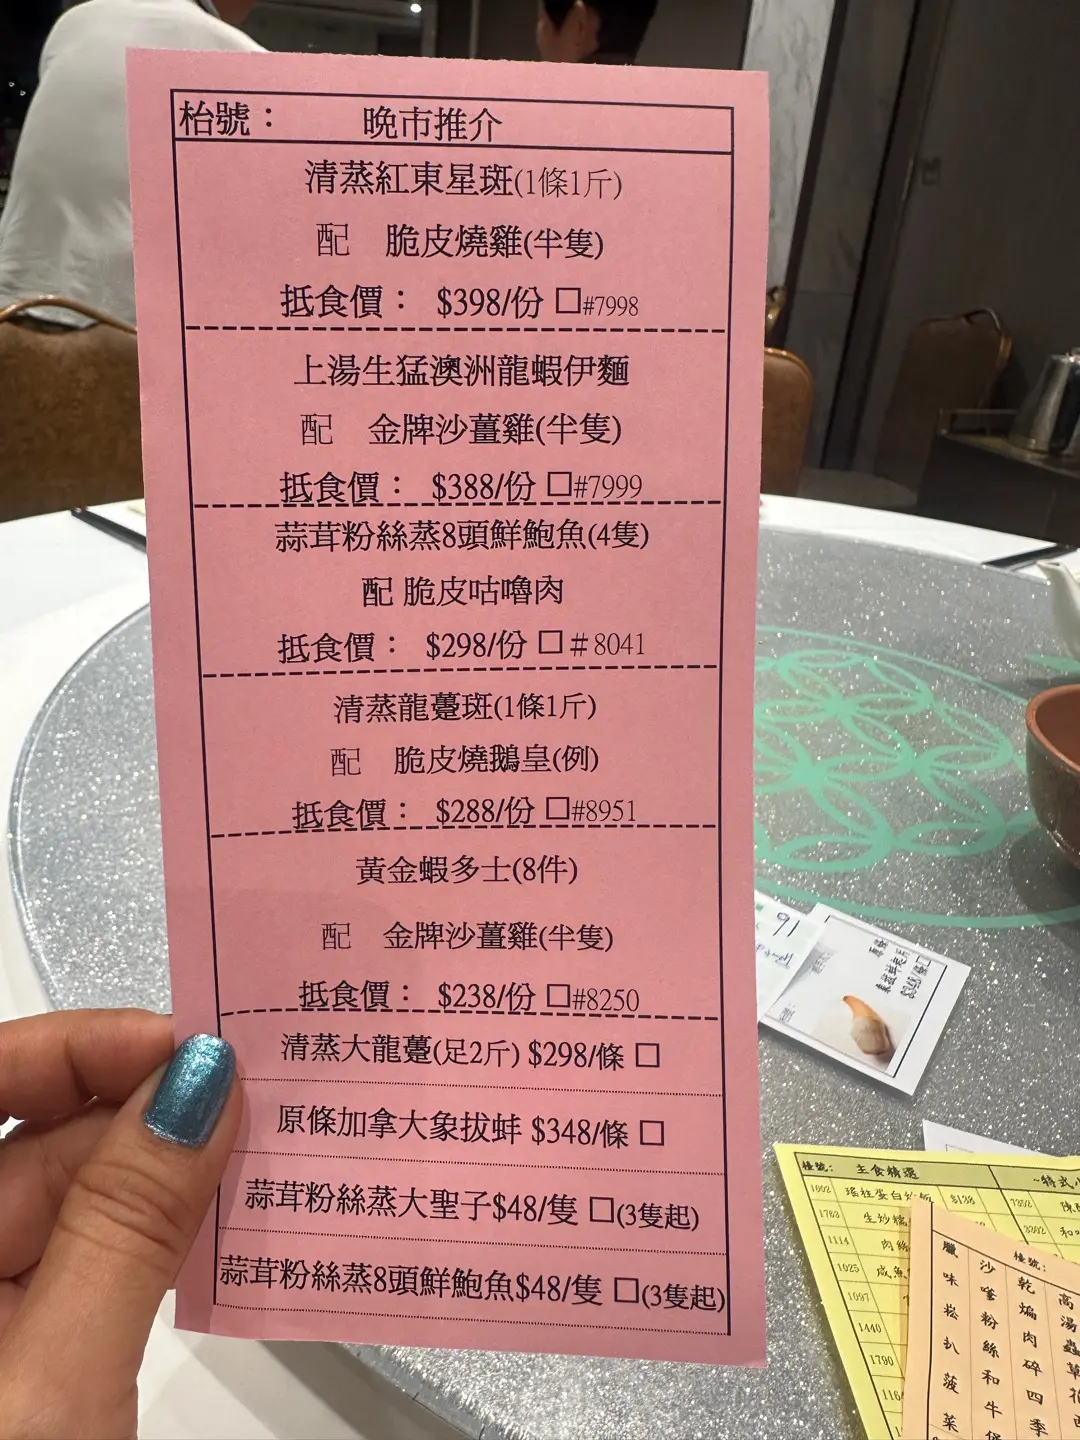 枱號： 晚市推介
清蒸紅東星斑(1條1斤)
配 脆皮燒雞(半隻)
抵食價： $398/份 □#7998
上湯生猛澳洲龍蝦伊麵
配 金牌沙薑雞(半隻)
抵食價： $388/份 □#7999
蒜茸粉絲蒸8頭鮮鮑魚(4隻)
配 脆皮咕嚕肉
抵食價： $298/份 □＃8041
清蒸龍躉斑(1條1斤)
配 脆皮燒鵝皇(例)
抵食價： $288/份 □#8951
黃金蝦多士(8件)
配 金牌沙薑雞(半隻)
抵食價： $238/份 □#8250
清蒸大龍躉(足2斤) $298/條 □
原條加拿大象拔蚌 $348/條 □
蒜茸粉絲蒸大聖子$48/隻 □(3隻起)
蒜茸粉絲蒸8頭鮮鮑魚$48/隻 □(3隻起)
91
檯號： 主食精選
~特式小
1602 瑤柱蛋白炒飯 $138
7352
1763 生炒糯
3202
1114 肉絲
1025 咸魚
1097
1440
1790
116
檯號：
臘味崧扒菠菜
沙嗲粉絲和牛
乾煸肉碎四季
高湯蟲草花